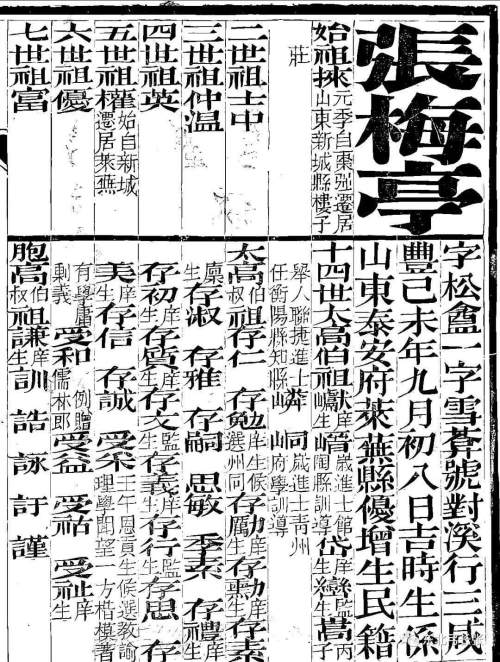 張梅亭
字松盦一字雪葊號對溪行三咸
豐己未年九月初八日吉時生係
山東泰安府萊蕪縣優增生民籍
始祖
元季自棗强遷居
山東新城縣樓子
莊
二世祖士中
三世祖仲溫
四世祖英
五世祖權
始自新城
遷居萊蕪
六世祖優
七世祖富
十四世太高伯祖獻
庠生
歲進士館
陶縣訓導
岱
庠生
監生
嵩
丙子
舉人聯捷進士
任衡陽縣知縣
歲進士青州
府學訓導
太高
伯叔
祖存仁
存勉
庠生候
選州同
存勵
庠生
存勳
庠生
廩生
存淑
存雅
存嗣
思敏
季素
存禮
庠生
存初
庠生
存質
庠生
存文
監生
存義
庠生
存行
監生
存思
存
美
庠生
存信
存誠
受采
壬午恩貢生候選教諭
理學聞望一方楷模著
有學庸
剩義
受和
例贈
儒林郎
受益
受祜
受祉
庠生
胞高
伯叔
祖謙
庠生
訓
誥
詠
訂
謹